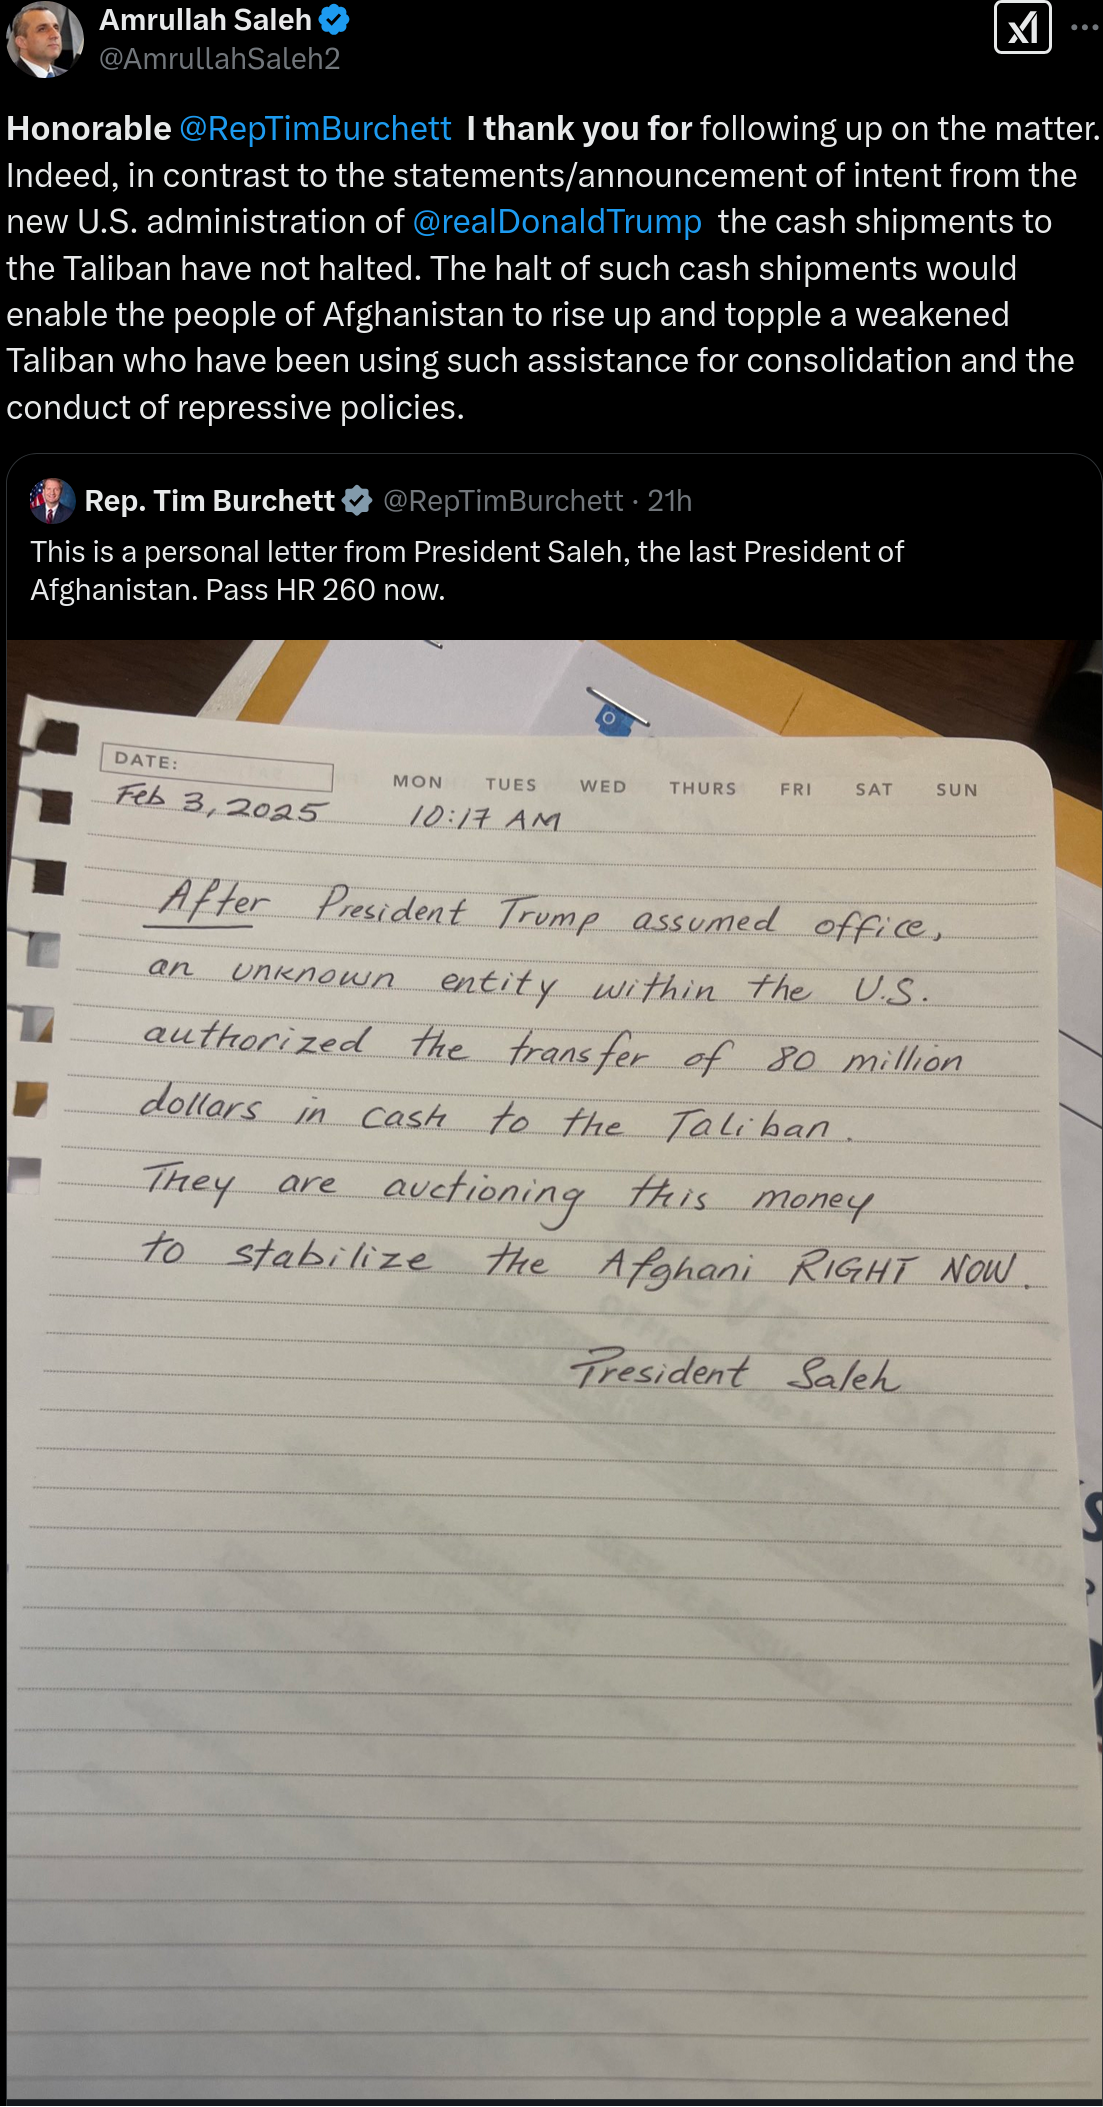 Amrullah Saleh
@AmrullahSaleh2
Honorable @RepTimBurchett I thank you for following up on the matter.
Indeed, in contrast to the statements/announcement of intent from the
new U.S. administration of @realDonaldTrump the cash shipments to
the Taliban have not halted. The halt of such cash shipments would
enable the people of Afghanistan to rise up and topple a weakened
Taliban who have been using such assistance for consolidation and the
conduct of repressive policies.
Rep. Tim Burchett @RepTimBurchett · 21h
This is a personal letter from President Saleh, the last President of
Afghanistan. Pass HR 260 now.
DATE:
MON TUES WED THURS FRI SAT SUN
Feb 3, 2025 10:17 AM
After President Trump assumed office,
an unknown entity within the U.S.
authorized the transfer of 80 million
dollars in cash to the Taliban.
They are auctioning this money
to stabilize the Afghani RIGHT NOW.
President Saleh